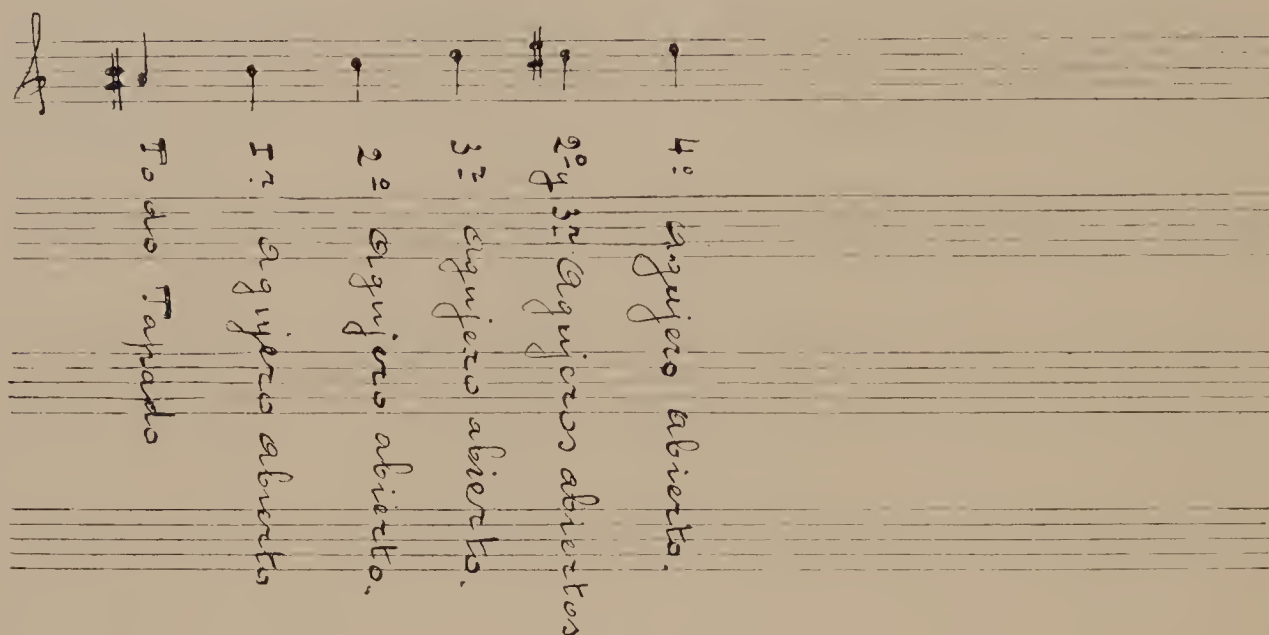 Todo Tapado
Iº agujero abierto
2º agujero abierto.
3º agujero abierto.
2º y 3º agujeros abiertos
4º agujero abierto.